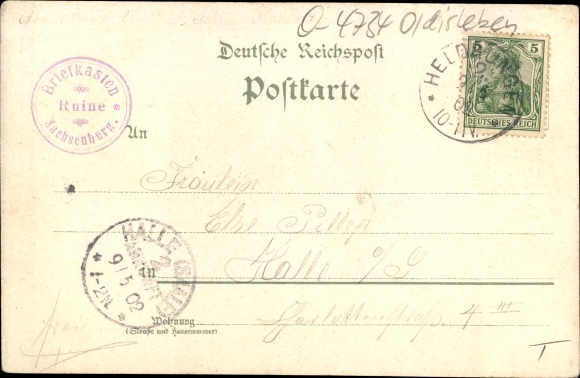 O-4734 Oldisleben
Deutsche Reichspost
Postkarte
Briefkasten
Ruine
Sachsenburg.
5 5
DEUTSCHES REICH
HELDRUNGEN
10-11N.
An
Fräulein
Else
Halle a/S
HALLE (SAALE)
2
9/5 02
1-2N.
in
Wohnung
(Straße und Hausnummer)
Charlottenstraß. 4 III